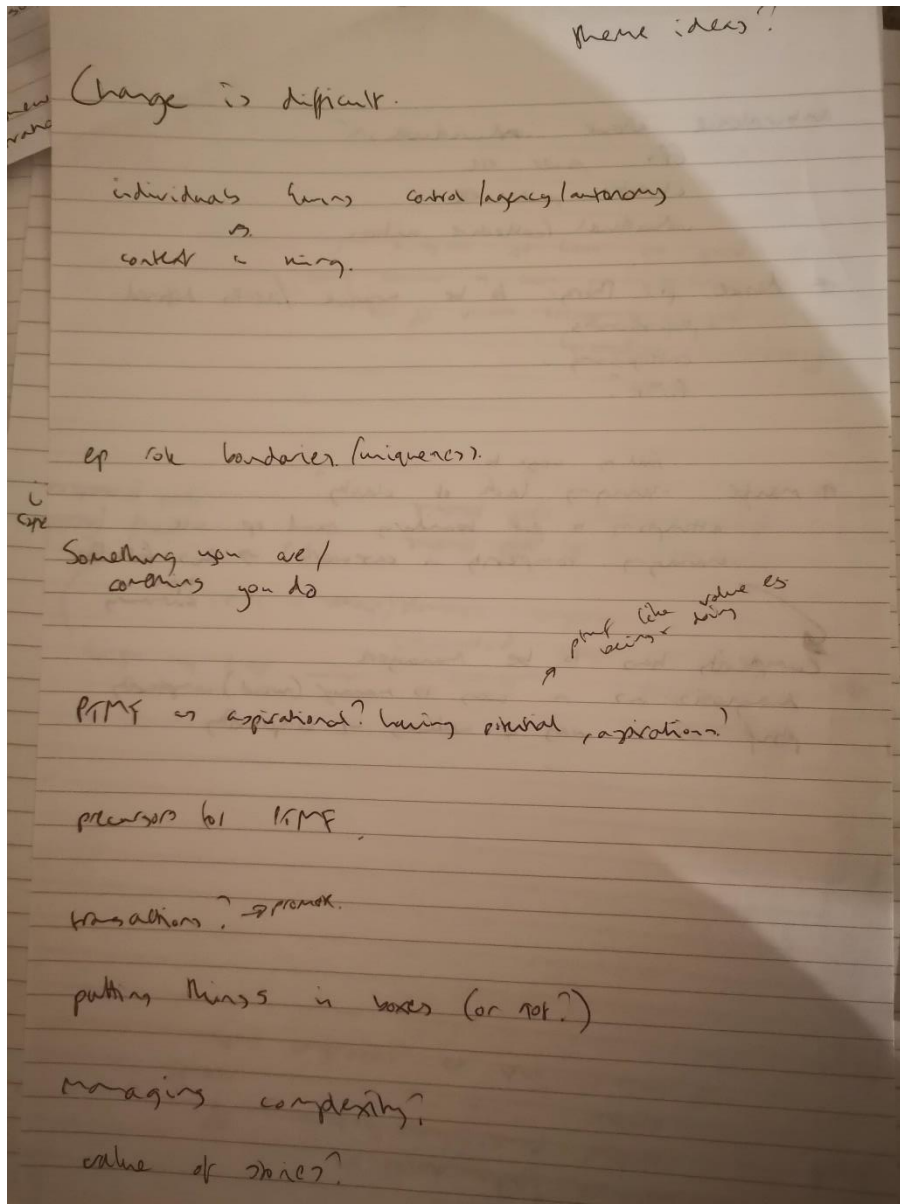 theme ideas?
Change is difficult.
individuals having control/agency/autonomy
vs.
context is king.
ep role boundaries (uniqueness).
Something you are/
something you do
ptmf like value eg.
being + doing
PTMF as aspirational? having potential, aspirations?
precursors for PTMF.
transactions? → promote.
putting things in boxes (or not?)
managing complexity?
value of stories?